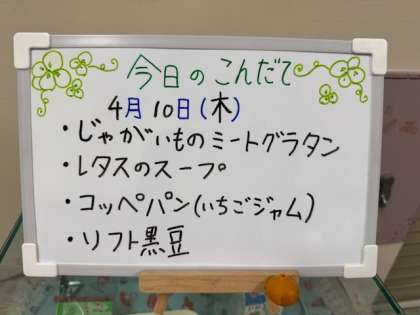 今日のこんだて
4月10日(木)
・じゃがいものミートグラタン
・レタスのスープ
・コッペパン(いちごジャム)
・ソフト黒豆